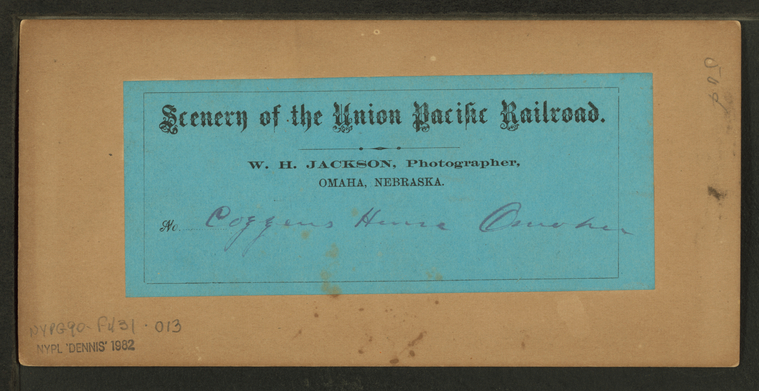 Scenery of the Union Pacific Railroad.
W. H. JACKSON, Photographer,
OMAHA, NEBRASKA.
No Coggens House Omaha
NYPG90-F431-013
NYPL 'DENNIS' 1982